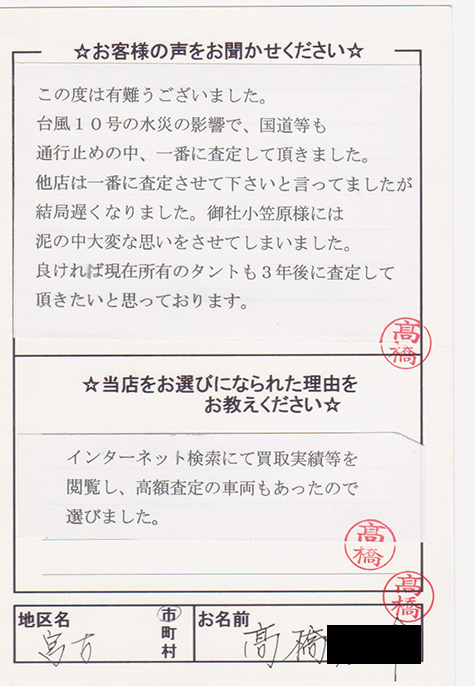 ☆お客様の声をお聞かせください☆
この度は有難うございました。
台風１０号の水災の影響で、国道等も
通行止めの中、一番に査定して頂きました。
他店は一番に査定させて下さいと言ってましたが
結局遅くなりました。御社小笠原様には
泥の中大変な思いをさせてしまいました。
良ければ現在所有のタントも３年後に査定して
頂きたいと思っております。
髙橋
☆当店をお選びになられた理由を
お教えください☆
インターネット検索にて買取実績等を
閲覧し、高額査定の車両もあったので
選びました。
髙橋
髙橋
地区名
宮古
市
町
村
お名前
髙橋